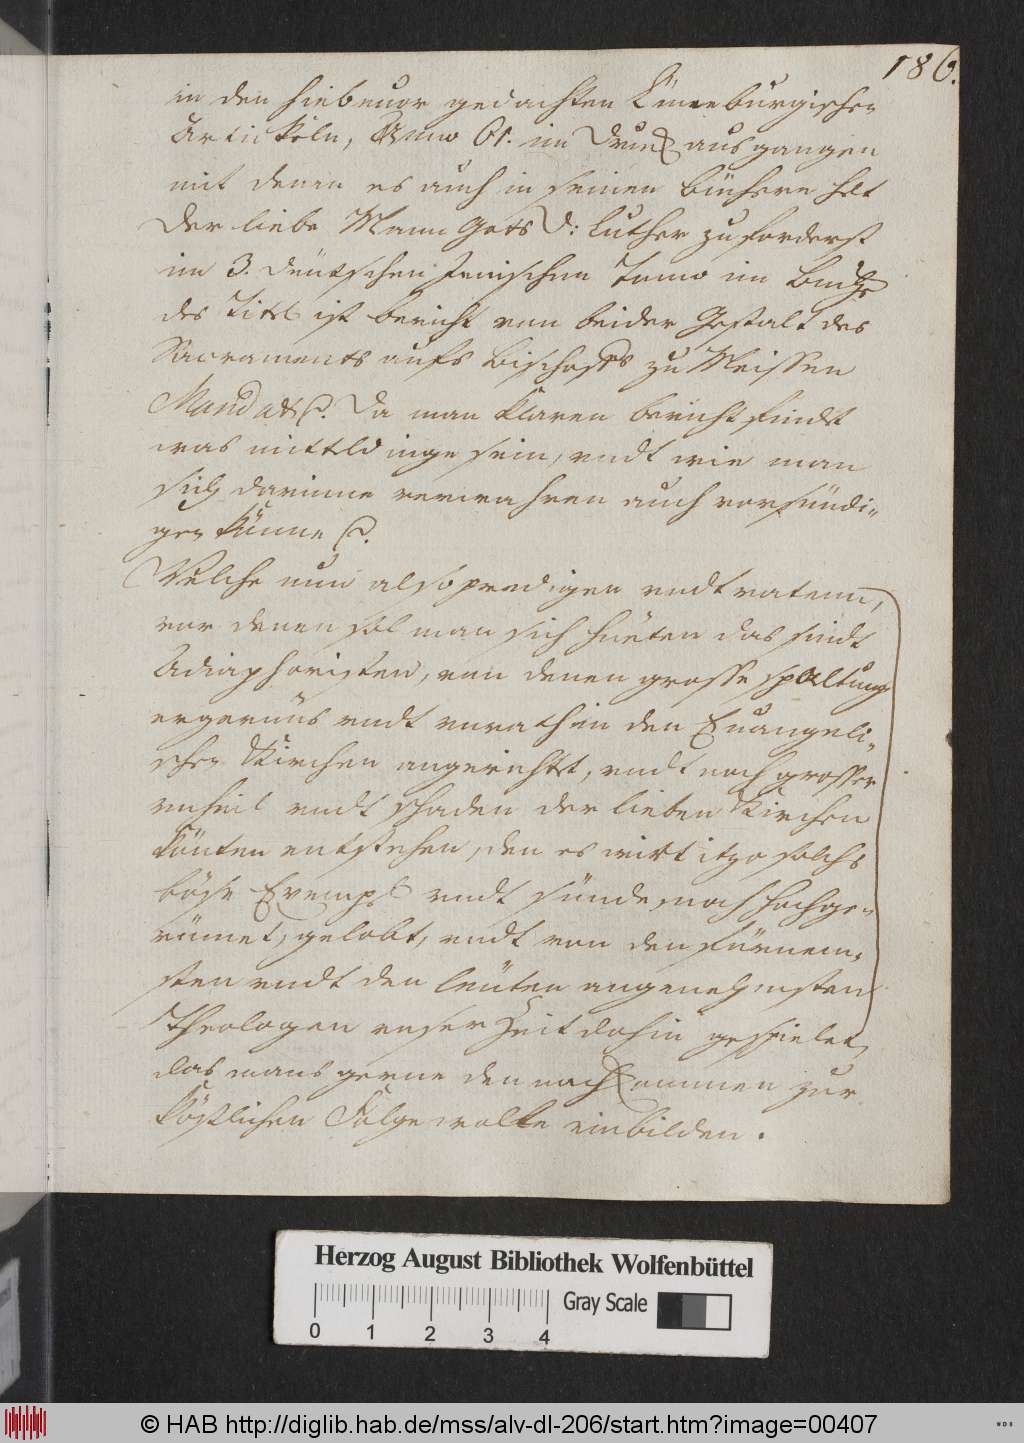 186.
in den hiebeuor gedachten Lüneburgischen
Artickeln, Anno 61. im Druck ausgangen
mit denen es auch in seinen büchern helt
Der liebe Mann Gots D: Luther zuforderst
im 3. deutschen Jenischen Tomo im buche
des Titel ist bericht von beider Gestalt des
Sacraments aufs Bischoffs zu Meissen
Mandat &. Da man klaren bericht findet
was mitteldinge sein, vndt wie man
sich darinne verwahren auch versündi-
gen künne &.
Welche nun also predigen vndt raten,
vor denen sol man sich hüeten das sindt
Adiaphoristen, von denen grosse spaltung
ergernüs vndt vnrath in den Euangeli-
schen Kirchen angerichtet, vndt noch grosser
vnheil vndt schaden der lieben Kirchen
könten entstehen, den es wirt itzo solchs
böse Exempel vndt sünde, noch hochge-
rümet, gelobt, vndt von den fürnem-
sten vndt den leuten angenehmsten
Theologen vnser Zeit dahin gespielet,
das mans gerne den nachkommen zur
köstlichen Folge wolte einbilden.
Herzog August Bibliothek Wolfenbüttel
Gray Scale
0 1 2 3 4
© HAB http://diglib.hab.de/mss/alv-dl-206/start.htm?image=00407